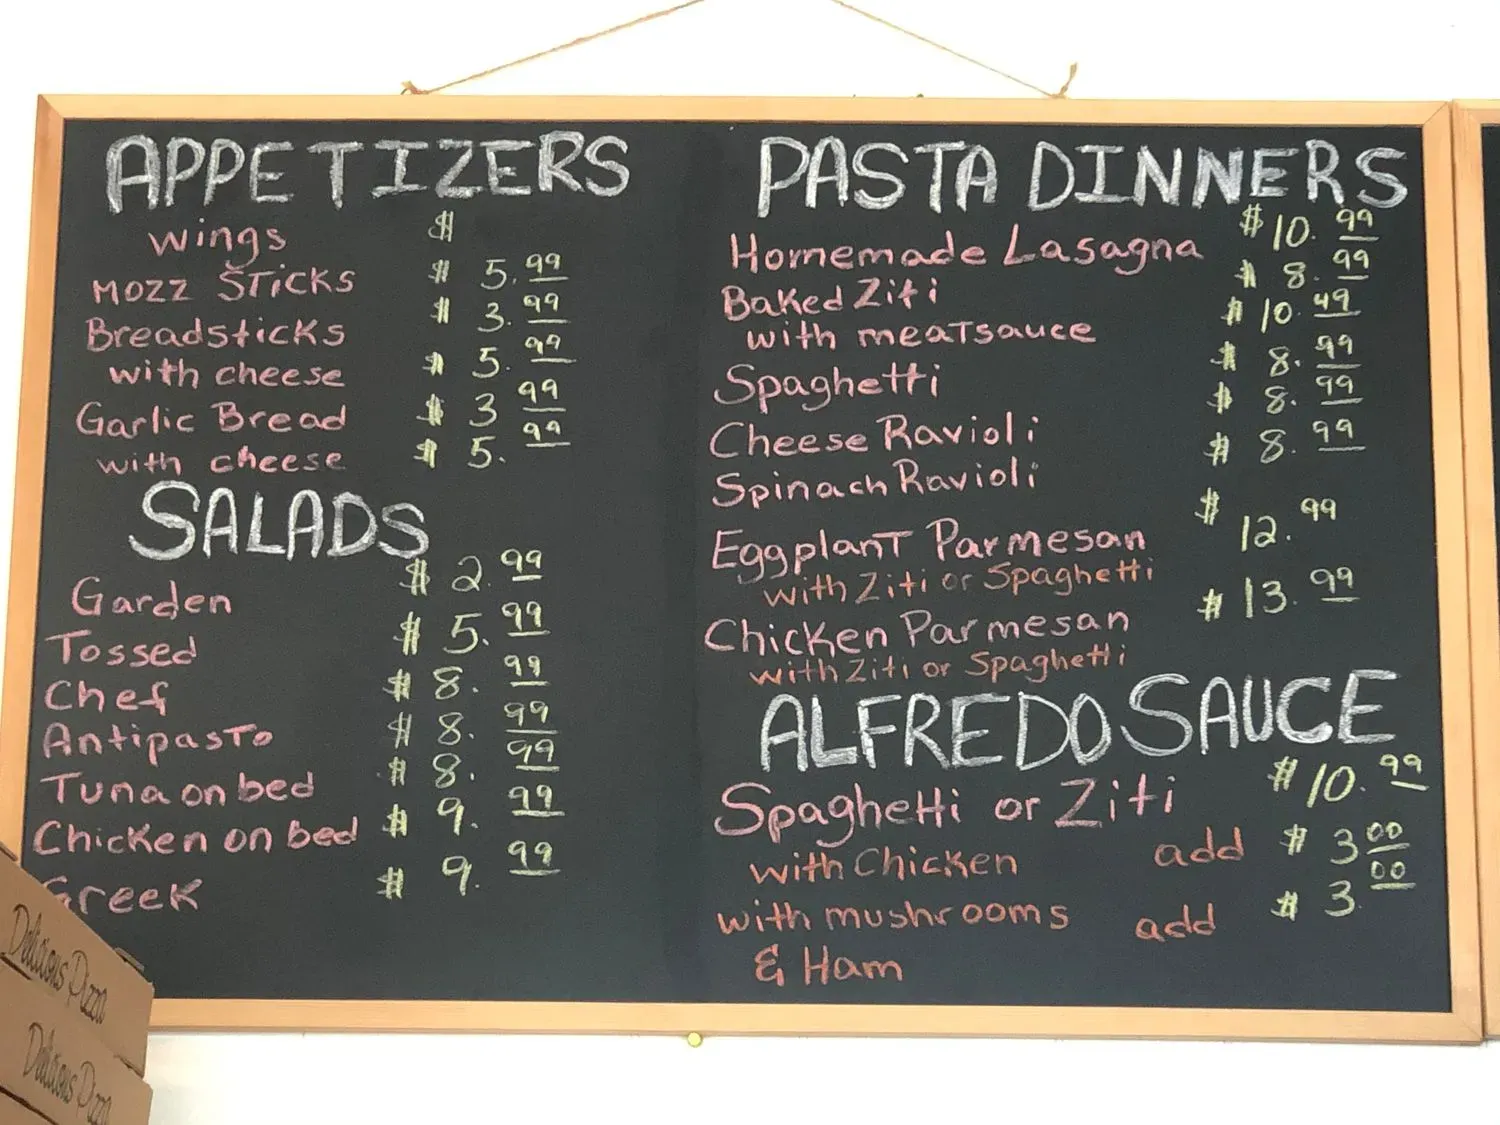 APPETIZERS
Wings $
MOZZ STICKS $ 5.99
Breadsticks $ 3.99
with cheese $ 5.99
Garlic Bread $ 3.99
with cheese $ 5.99
SALADS
Garden $ 2.99
Tossed $ 5.99
Chef $ 8.99
Antipasto $ 8.99
Tuna on bed $ 8.99
Chicken on bed $ 9.99
Greek $ 9.99
PASTA DINNERS
Homemade Lasagna $ 10.99
Baked Ziti $ 8.99
with meatsauce $ 10.49
Spaghetti $ 8.99
Cheese Ravioli $ 8.99
Spinach Ravioli $ 8.99
Eggplant Parmesan $ 12.99
with Ziti or Spaghetti
Chicken Parmesan $ 13.99
with Ziti or Spaghetti
ALFREDO SAUCE
Spaghetti or Ziti $ 10.99
with Chicken add $ 3.00
with mushrooms add $ 3.00
& Ham
Delicious Pizza
Delicious Pizza